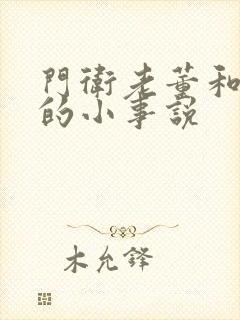 門衛老董和
的小事説
木允鋒